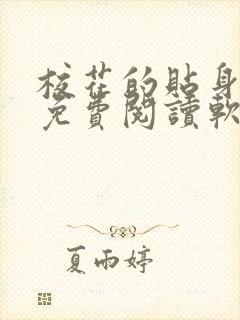 校花的貼身
免費閱讀軟
夏雨婷